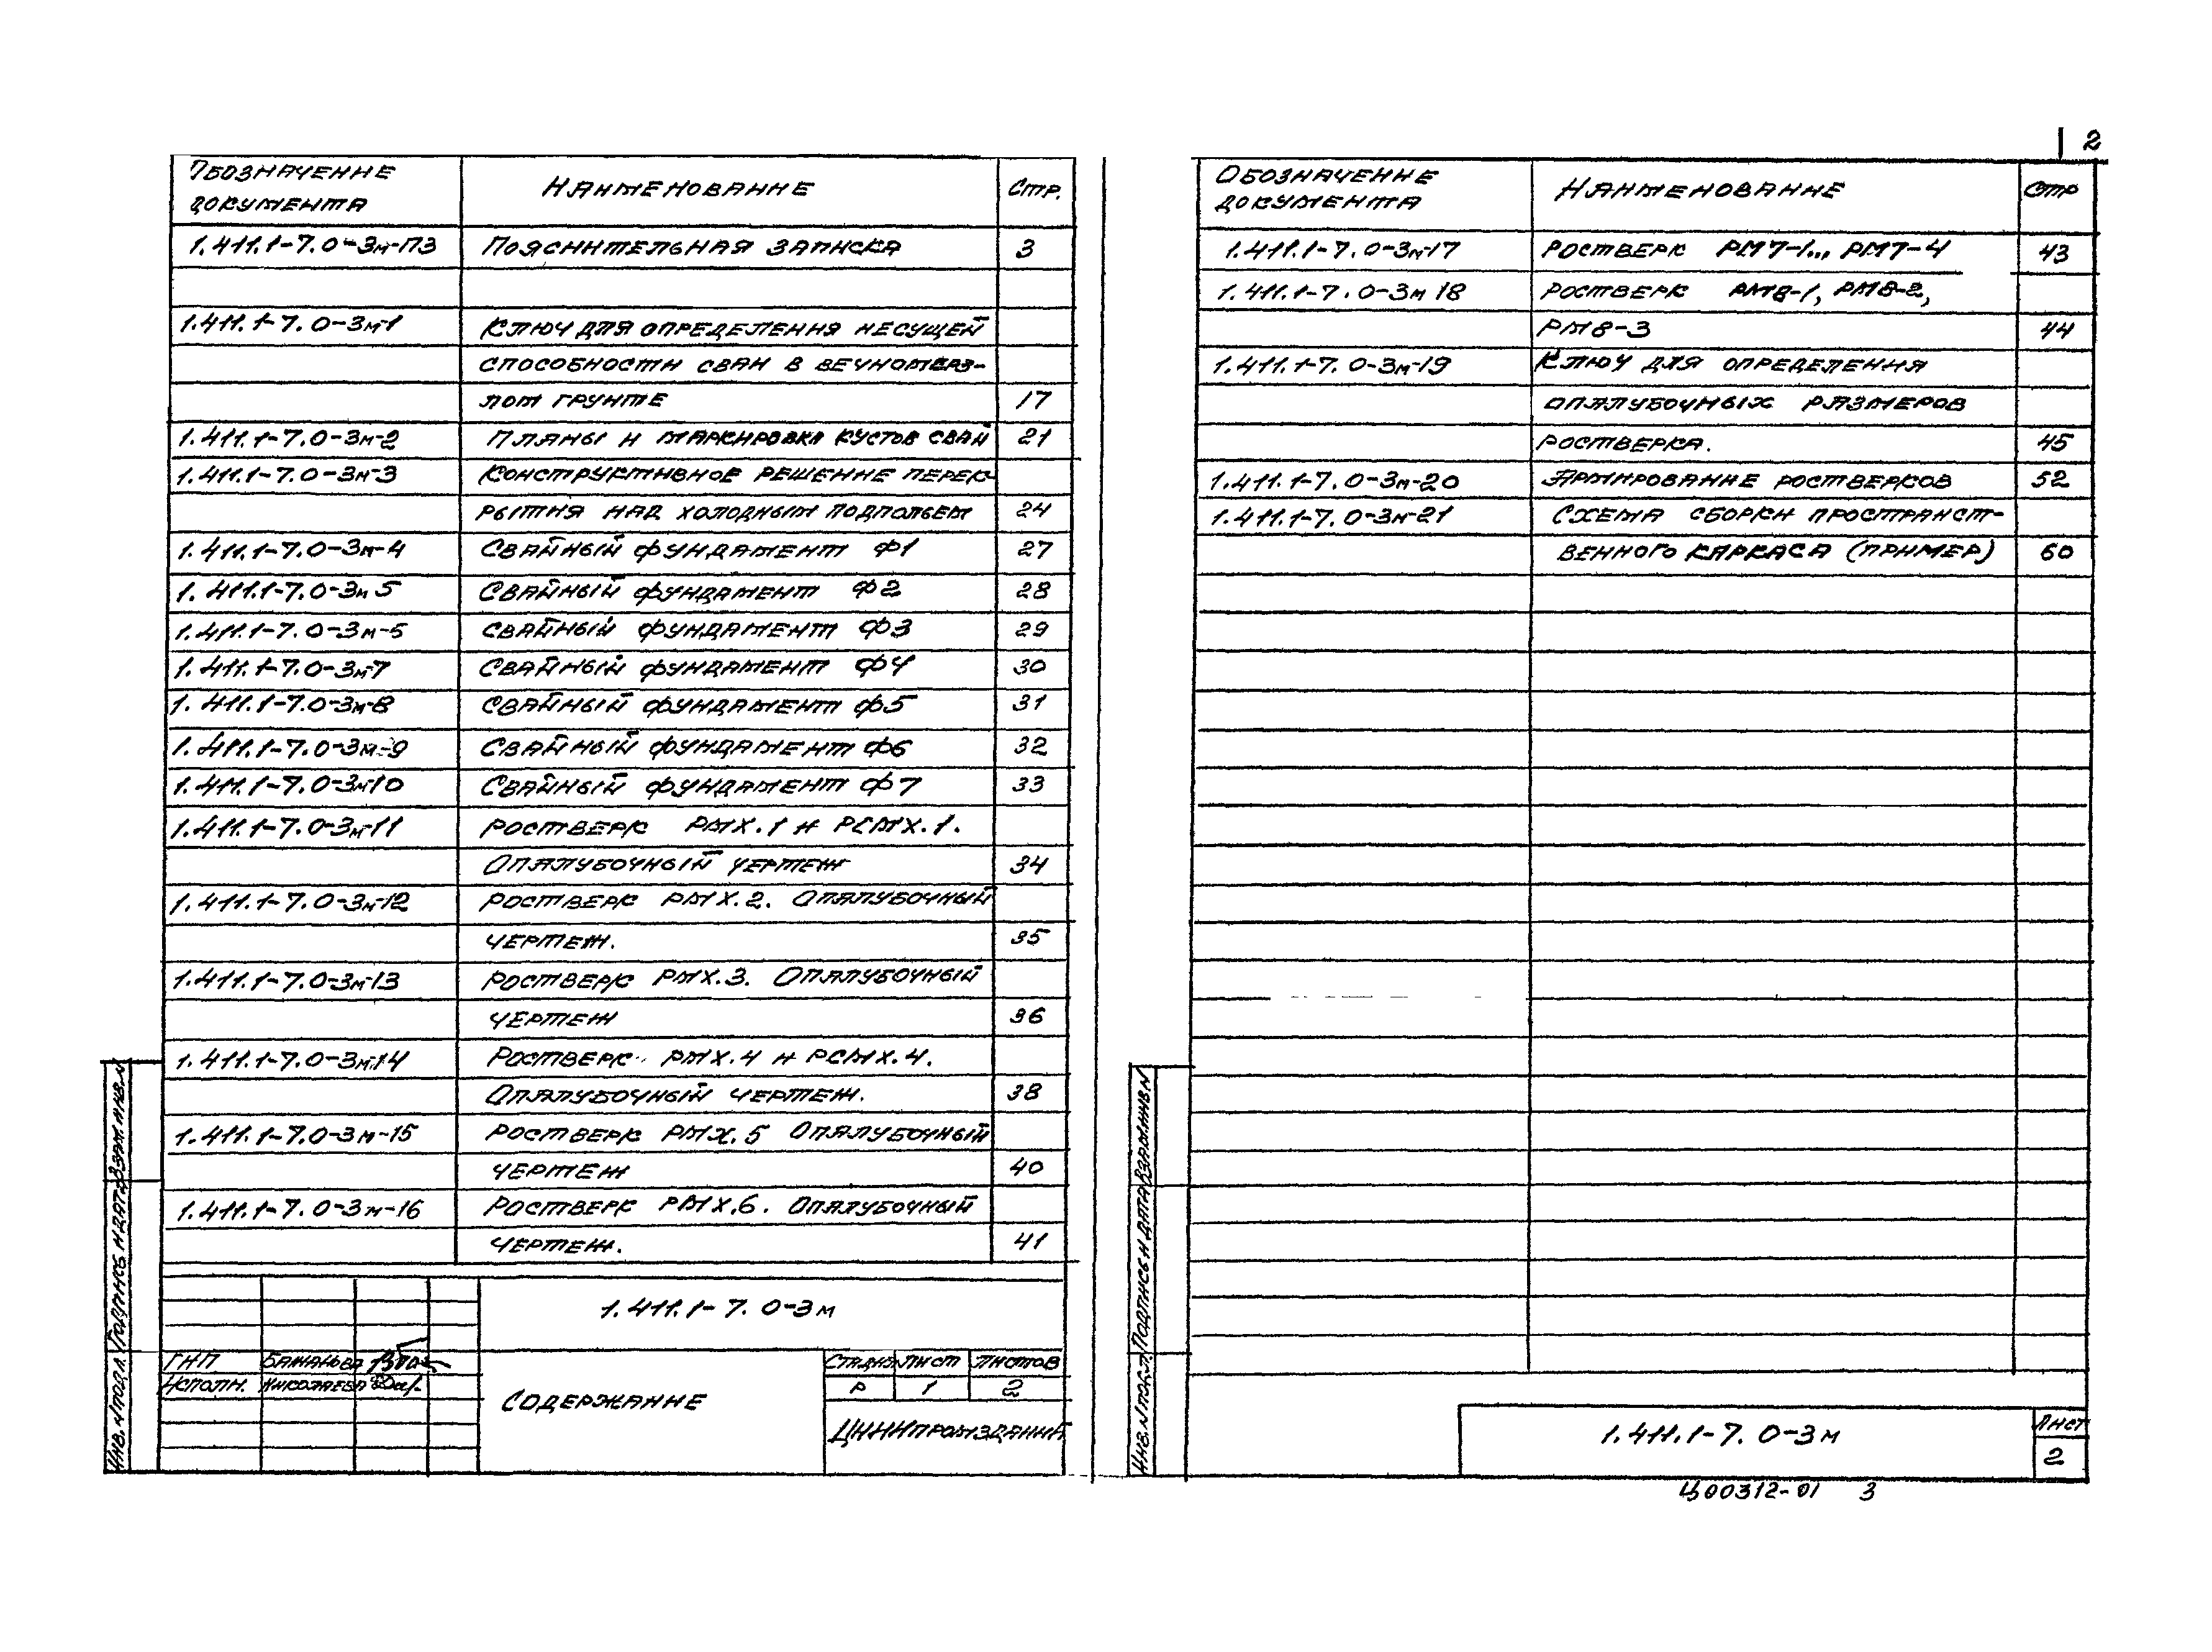 2
Обозначение
документа
Наименование
Стр.
1.411.1-7.0-3м-ПЗ Пояснительная записка 3
1.411.1-7.0-3м-1 Ключ для определения несущей
способности сваи в вечномерз-
лом грунте 17
1.411.1-7.0-3м-2 Планы и маркировка кустов свай 21
1.411.1-7.0-3м-3 Конструктивное решение перек-
рытия над холодным подпольем 24
1.411.1-7.0-3м-4 Свайный фундамент Ф1 27
1.411.1-7.0-3м 5 Свайный фундамент Ф2 28
1.411.1-7.0-3м-6 Свайный фундамент Ф3 29
1.411.1-7.0-3м-7 Свайный фундамент Ф4 30
1.411.1-7.0-3м-8 Свайный фундамент Ф5 31
1.411.1-7.0-3м-9 Свайный фундамент Ф6 32
1.411.1-7.0-3м-10 Свайный фундамент Ф7 33
1.411.1-7.0-3м-11 Ростверк РМХ.1 и РСМХ.1.
Опалубочный чертеж 34
1.411.1-7.0-3м-12 Ростверк РМХ.2. Опалубочный
чертеж. 35
1.411.1-7.0-3м-13 Ростверк РМХ.3. Опалубочный
чертеж 36
1.411.1-7.0-3м-14 Ростверк РМХ.4 и РСМХ.4.
Опалубочный чертеж. 38
1.411.1-7.0-3м-15 Ростверк РМХ.5 Опалубочный
чертеж 40
1.411.1-7.0-3м-16 Ростверк РМХ.6. Опалубочный
чертеж. 41
1.411.1-7.0-3м
ГИП Бажанова
Исполн. Николаева
Содержание
Стадия Лист Листов
Р 1 2
ЦНИИпромзданий
Инв.№подл. Подпись и дата Взам.инв.№
Обозначение
документа
Наименование
Стр
1.411.1-7.0-3м-17 Ростверк РМ7-1... РМ7-4 43
1.411.1-7.0-3м 18 Ростверк РМ8-1, РМ8-2,
РМ8-3 44
1.411.1-7.0-3м-19 Ключ для определения
опалубочных размеров
ростверка. 45
1.411.1-7.0-3м-20 Армирование ростверков 52
1.411.1-7.0-3м-21 Схема сборки пространст-
венного каркаса (пример) 60
Инв.№подл. Подпись и дата Взам.инв.№
1.411.1-7.0-3м
Лист
2
Ц00312-01 3